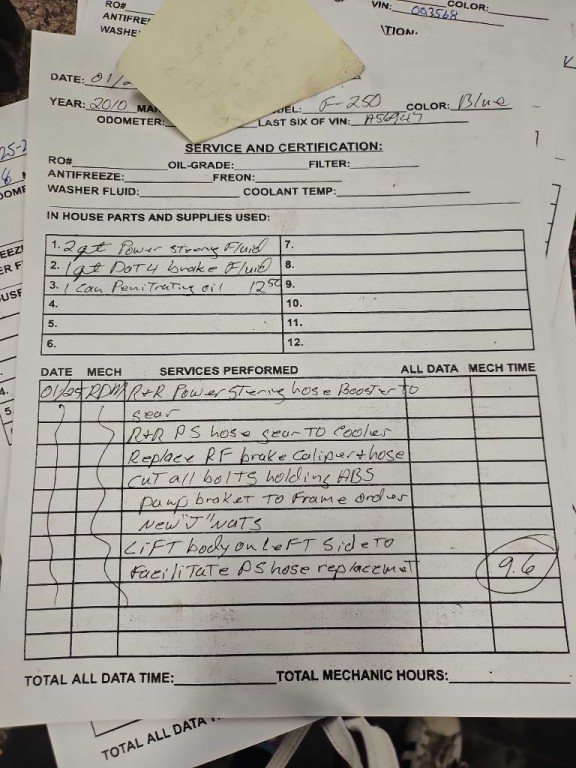 RO#
ANTIFRE
WASHE
VIN: 003568
COLOR:
TION:
DATE: 01/2
YEAR: 2010 MA DEL: F-250 COLOR: Blue
ODOMETER: LAST SIX OF VIN: A56947
SERVICE AND CERTIFICATION:
RO# OIL-GRADE: FILTER:
ANTIFREEZE: FREON:
WASHER FLUID: COOLANT TEMP:
IN HOUSE PARTS AND SUPPLIES USED:
1. 2 qt Power Steering Fluid 7.
2. 1 qt DOT4 brake Fluid 8.
3. 1 Can Penitrating oil 12 50 9.
4. 10.
5. 11.
6. 12.
DATE MECH SERVICES PERFORMED ALL DATA MECH TIME
01/25 RDM R+R Power Stering hose Booster TO
gear
R+R PS hose gear TO Cooler
Replace RF brake Caliper + hose
CUT all bolTS holding ABS
pump braket TO Frame order
New "J" NuTS
LiFT body on LeFT Side TO
Facilitate PS hose replacemet 9.6
TOTAL ALL DATA TIME: TOTAL MECHANIC HOURS:
TOTAL ALL DATA